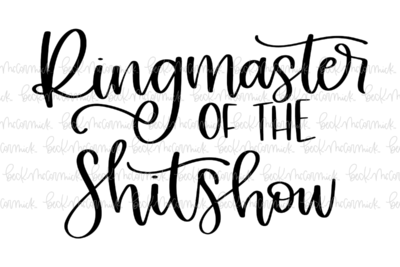 Ringmaster
OF THE
Shitshow